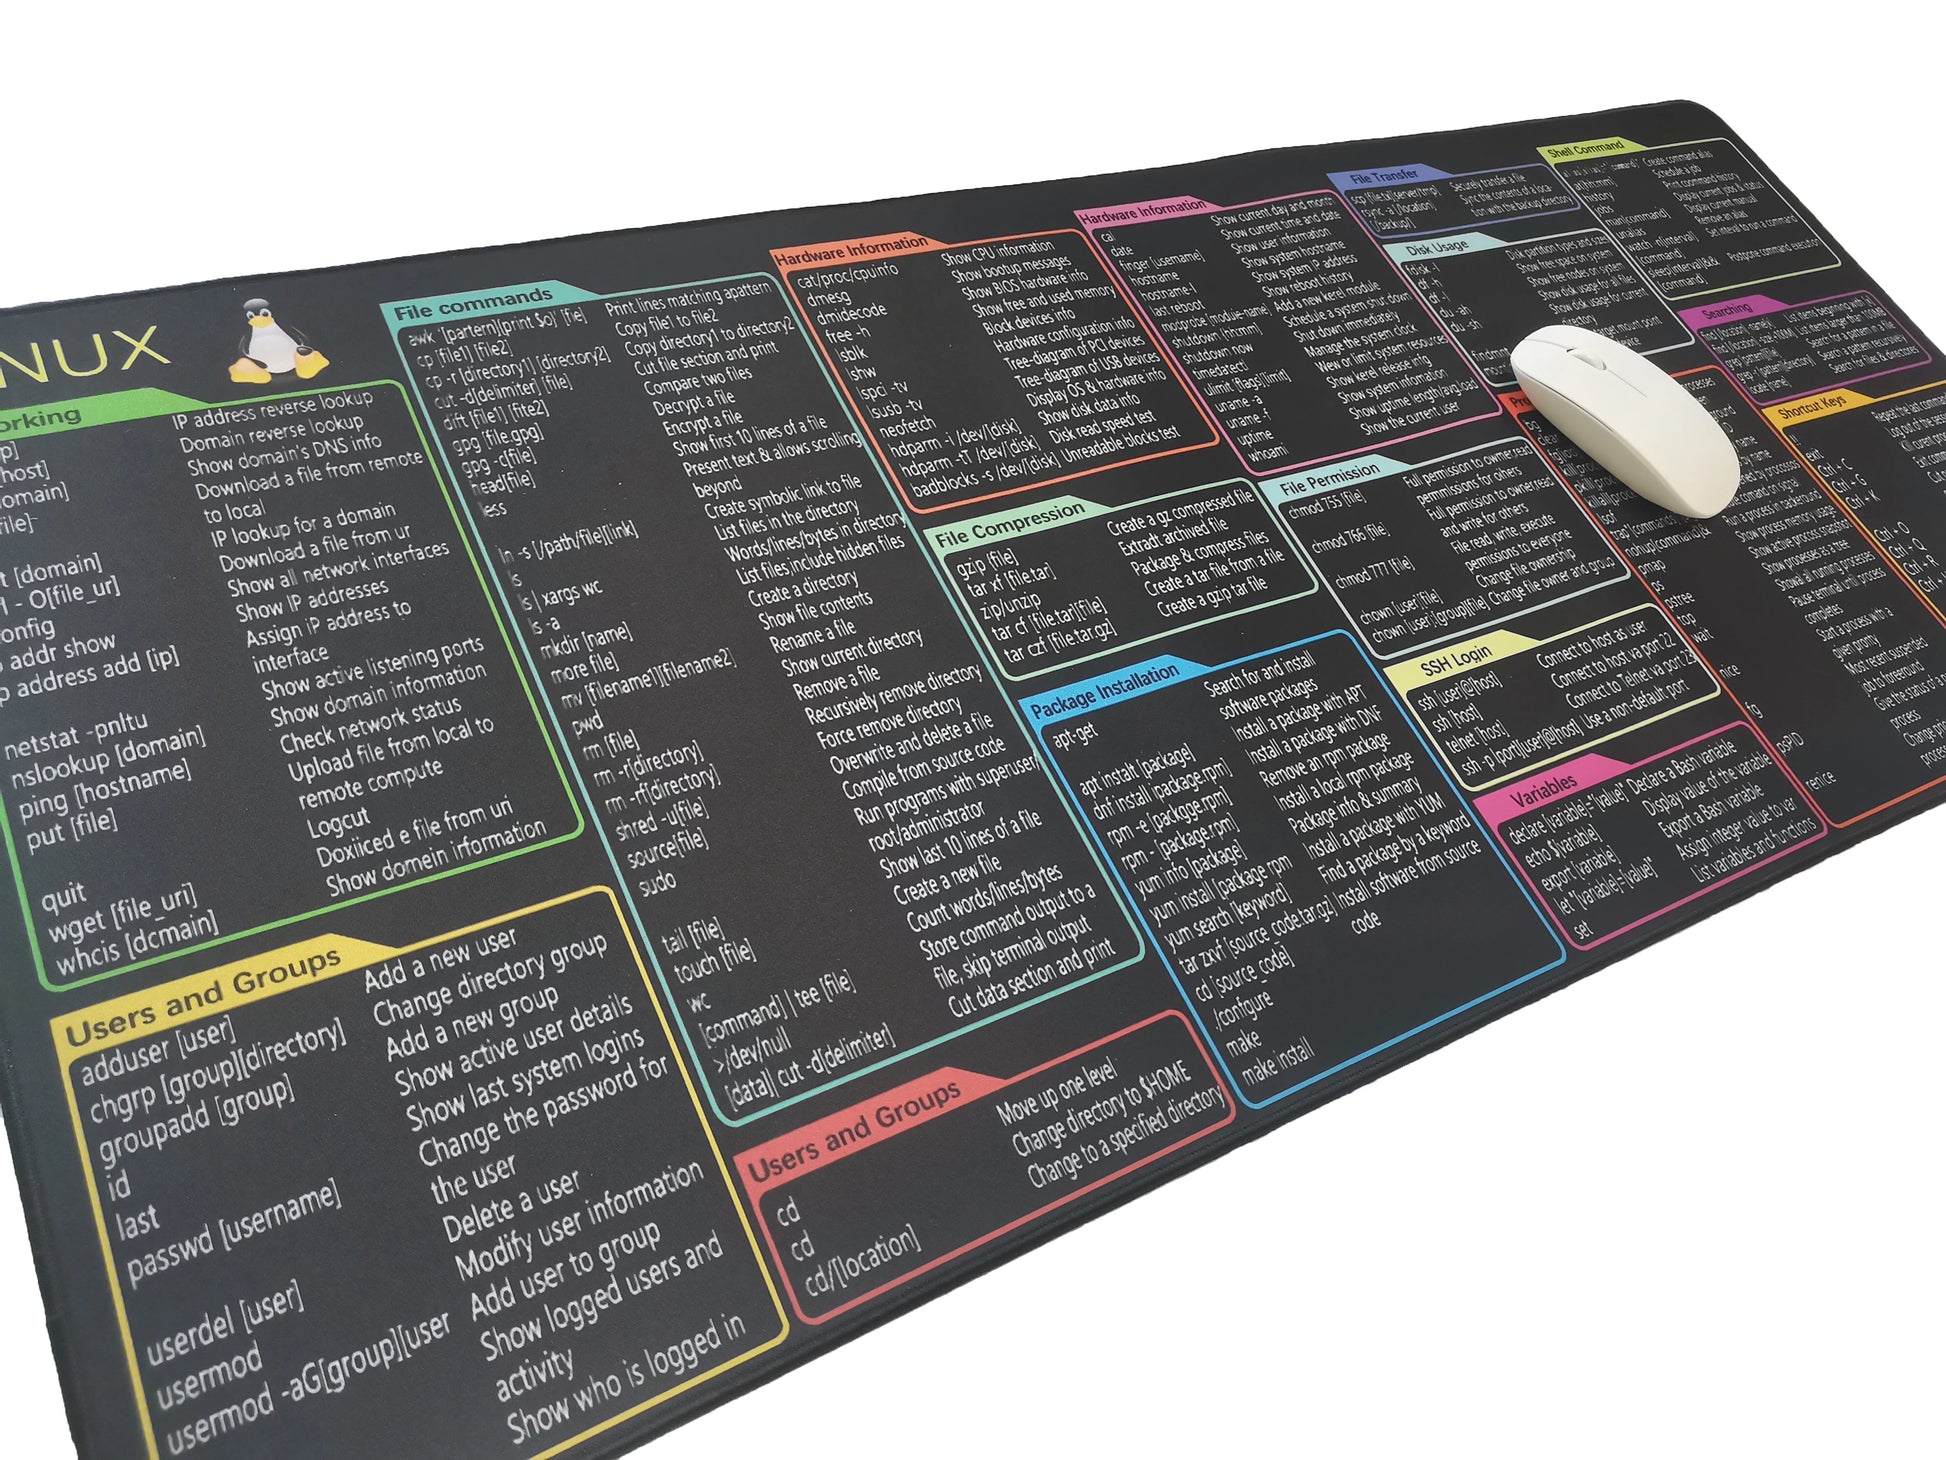 NUX
orking
p]
[host]
omain]
file]
t [domain]
- O[file_ur]
onfig
addr show
address add [ip]
netstat -pnltu
nslookup [domain]
ping [hostname]
put [file]
quit
wget [file_uri]
whcis [dcmain]
IP address reverse lookup
Domain reverse lookup
Show domain's DNS info
Download a file from remote
to local
IP lookup for a domain
Download a file from ur
Show all network interfaces
Show IP addresses
Assign iP address to
interface
Show active listening ports
Show domain information
Check network status
Upload file from local to
remote compute
Logcut
Doxiiced e file from uri
Show domein irformation
Users and Groups
adduser [user]
chgrp [group][directory]
groupadd [group]
id
last
passwd [username]
userdel [user]
usermod
usermod -aG[group][user
Add a new user
Change directory group
Add a new group
Show active user details
Show last system logins
Change the password for
the user
Delete a user
Modify user information
Add user to group
Show logged users and
activity
Show who is logged in
File commands
awk '[partern][print $o]' [fie]
cp [file1] [file2]
cp -r [directory1] [directory2]
cut -d[delimiter] [file]
dift [file1] [fite2]
gpg [file.gpg]
gpg -c[file]
head[file]
less
ln -s [/path/file][link]
ls
ls | xargs wc
ls -a
mkdir [name]
more file]
mv [filename1][filename2]
pwd
rm [file]
rm -r[directory]
rm -rf[directory]
shred -u[file]
source[file]
sudo
tail [file]
touch [file]
wc
[command] | tee [file]
>/dev/null
[data]| cut -d[delimiter]
Print lines matching apattern
Copy file1 to file2
Copy directory1 to directory2
Cut file section and print
Compare two files
Decrypt a file
Encrypt a file
Show first 10 lines of a file
Present text & allows scrolling
beyond
Create symbolic link to file
List files in the directory
Words/lines/bytes in directory
List files,include hidden files
Create a directory
Show file contents
Rename a file
Show current directory
Remove a file
Recursively remove directory
Force remove directory
Overwrite and delete a file
Compile from source code
Run programs with superuser/
root/administrator
Show last 10 lines of a file
Create a new file
Count words/lines/bytes
Store command output to a
file, skip terminal output
Cut data section and print
Users and Groups
cd
cd
cd/[location]
Move up one level
Change directory to $HOME
Change to a specified directory
Hardware Information
cat/proc/cpuinfo
dmesg
dmidecode
free -h
lsblk
lshw
lspci -tv
lsusb -tv
neofetch
hdparm -i /dev/[disk]
hdparm -tT /dev/[disk]
badblocks -s /dev/[disk]
Show CPU information
Show bootup messages
Show BIOS hardware info
Show free and used memory
Block devices info
Hardware configuration info
Tree-diagram of PCI devices
Tree-diagram of USB devices
Display OS & hardware info
Show disk data info
Disk read speed test
Unreadable blocks test
File Compression
gzip [file]
tar xf [file.tar]
zip/unzip
tar cf [file.tar][file]
tar czf [file.tar.gz]
Create a gz compressed file
Extradt archived file
Package & compress files
Create a tar file from a file
Create a gzip tar file
Package Installation
apt-get
apt instalt [package]
dnf install [package.rpm]
rpm -e [packgge.rpm]
rpm - [package.rpm]
yum info [package]
yum install [package rpm
yum search [keyword]
tar zxvf [source code.tar.gz]
cd [source_code]
./confgure
make
make install
Search for and install
software packages
Install a package with APT
Install a package with DNF
Remove an rpm package
Install a local rpm package
Package info & summary
Install a package with YUM
Find a package by a keyword
Install software from source
code
Hardware Information
cal
date
finger [username]
hostname
hostname-I
last reboot
modprobe [modue-name]
shutdown [hh:mm]
shutdown now
timedatect]
ulimit [flags][limit]
uname -a
uname -r
uptime
whoami
Show current day and month
Show current time and date
Show user information
Show system hostname
Show system IP address
Show reboot history
Add a new kerel module
Schedule a system shut down
Shut down immediately
Manage the system clock
View or limit system resources
Show kerel release info
Show system infomation
Show uptime length/avg.load
Show the current user
File Permission
chmod 755 [file]
chmod 766 [file]
chmod 777 [file]
chown [user][file]
chown [user].[group][file]
Full permission to owner,read
permissions for others
Full permission to owner,read
and write for others
File read, write, execute
permissions to everyone
Change file ownership
Change file owner and group
SSH Login
ssh [user]@[host]
ssh [host]
telnet [host]
ssh -p [port][user]@[host]
Connect to host as user
Connect to host va port 22
Connect to Telnet va port 23
Use a non-default port
Variables
declare [variable]="[value]"
echo $[variable]
export [variable]
let "[variable]=[value]"
set
Declare a Bash variable
Display value of the variable
Export a Bash variable
Assign integer value to var
List variables and functions
File Transfer
scp [file.txt][server/tmp]
sync -a [location]
[/backup/]
Securely transfer a file
Sync the contents of a loca-
tion with the backup directory
Disk Usage
fdisk -l
df -h
df -i
du -ah
du -sh
Disk partition types and sizes
Show free space on system
Show free nodes on system
Show disk usage for all files
Show disk usage for current
directory
mount point
Shell Command
at[hh:mm]
history
jobs
man[command]
unalias
watch -n[interval]
command
sleep[interval]&&
[command]
Create command alias
Schedule a job
Print coommand history
Display current jobs & status
Display current manual
Remove an alias
Set interval to run a command
Postpone command execution
Searching
Search for a pattern in a file
Search a pattern recursively
Search for files & directories
Shortcut Keys
!!
exit
Ctrl - C
Ctrl - G
Ctrl - K
Ctrl - O
Ctrl - Q
Ctrl - R
nohup[command]&
pmap
ps
pstree
top
wait
nice
fg
psPID
renice
Run a process in background
Show process memory usage
Show active process snapshot
Show proesses as a tree
Show all running processes
Pause terminal until process
completes
Start a process with a
given priority
Most recent suspended
job to foreground
process